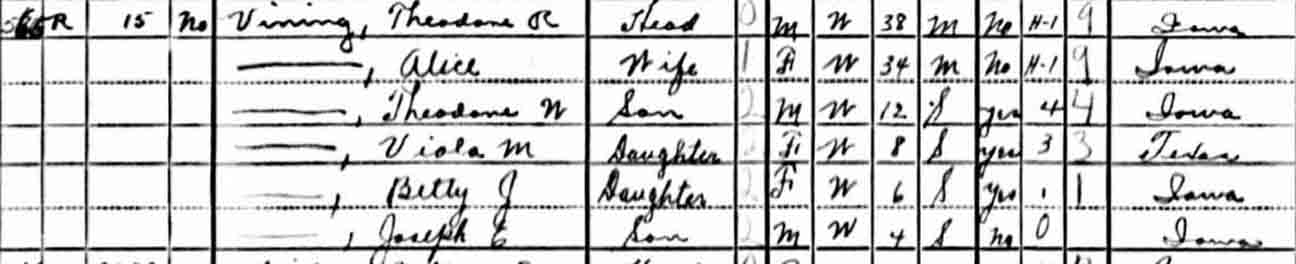 R 15 No Vining, Theodore R Head 0 M W 38 M No H-1 9 Iowa
, Alice Wife 1 F W 34 M No H-1 9 Iowa
, Theodore W Son 2 M W 12 S yes 4 4 Iowa
, Viola M Daughter 2 F W 8 S yes 3 3 Texas
, Betty J Daughter 2 F W 6 S yes 1 1 Iowa
, Joseph E Son 2 M W 4 S no 0 Iowa